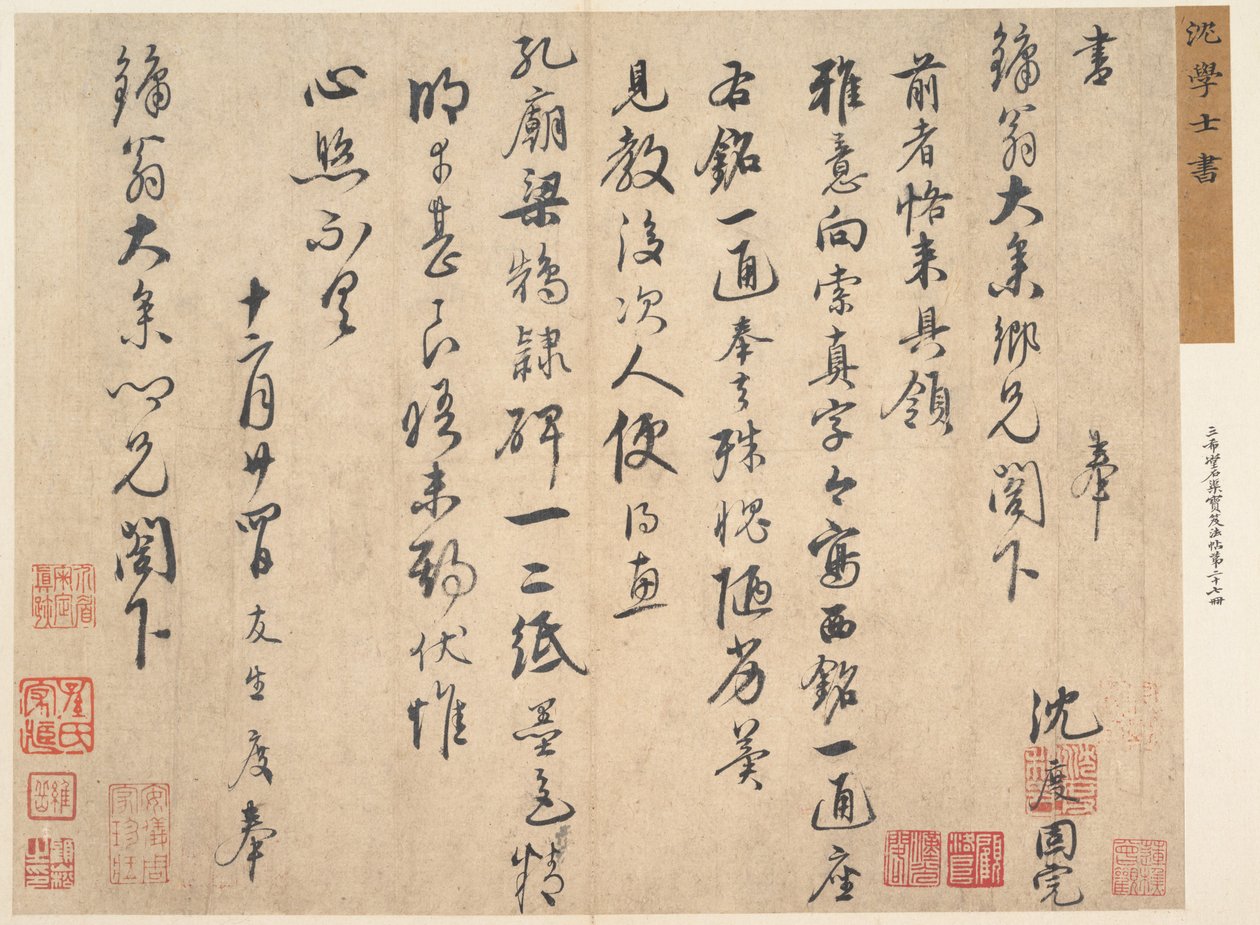 沈學士書
三希堂石渠寶笈法帖第二十七冊
書 奉
鏞翁大參鄉兄閣下 沈度固完
前者恪來具領
雅意向索真字今寫西銘一通座
右銘一通奉去殊愧陋劣冀
見教後次人便得惠
孔廟梁鵠隸碑一二紙墨色精
明者甚良晤未期伏惟
心照不具
十二月廿四日友生度奉
鏞翁大參鄉兄閣下
安儀周家珍藏